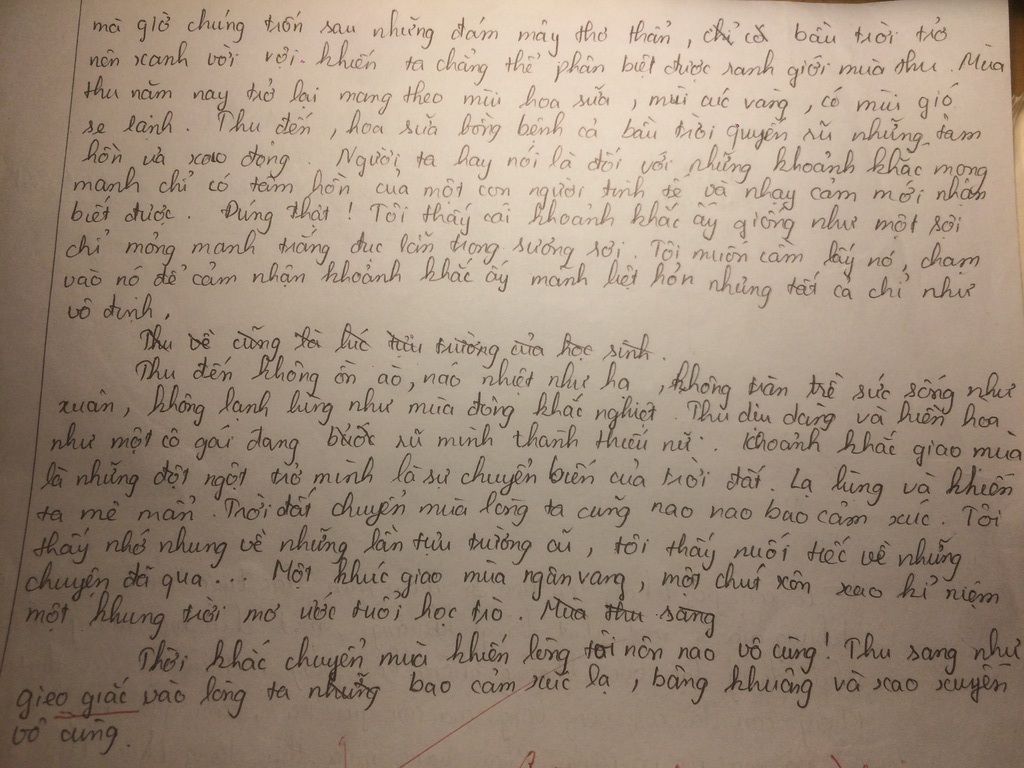 mà giờ chúng trốn sau những đám mây thơ thẩn, chỉ có bầu trời trở
nên xanh vời vợi. khiến ta chẳng thể phân biệt được ranh giới mùa thu. Mùa
thu năm nay trở lại mang theo mùi hoa sữa, mùi cúc vàng, có mùi gió
se lạnh. Thu đến, hoa sữa bồng bềnh cả bầu trời quyến rũ những tâm
hồn và xao động. Người ta hay nói là đối với những khoảnh khắc mong
manh chỉ có tâm hồn của một con người tinh tế và nhạy cảm mới nhận
biết được. Đúng thật! Tôi thấy cái khoảnh khắc ấy giống như một sợi
chỉ mỏng manh trắng đục lẫn trong sương sơi. Tôi muốn cầm lấy nó, chạm
vào nó để cảm nhận khoảnh khắc ấy mãnh liệt hơn nhưng tất cả chỉ như
vô định.
Thu về cũng là lúc tựu trường của học sinh.
Thu đến không ồn ào, náo nhiệt như hạ, không tràn trề sức sống như
xuân, không lạnh lùng như mùa đông khắc nghiệt. Thu dịu dàng và hiền hoa
như một cô gái đang bước rũ mình thành thiếu nữ. Khoảnh khắc giao mùa
là những đột ngột trở mình là sự chuyển biến của trời đất. Lạ lùng và khiến
ta mê mẩn. Trời đất chuyển mùa lòng ta cũng nao nao bao cảm xúc. Tôi
thấy nhớ nhung về những lần tựu trường cũ, tôi thấy nuối tiếc về những
chuyện đã qua... Một khúc giao mùa ngân vang, một chút xôn xao kỉ niệm
một khung trời mơ ước tuổi học trò. Mùa thu sang
Thời khắc chuyển mùa khiến lòng tôi nôn nao vô cùng! Thu sang như
gieo giắc vào lòng ta những bao cảm xúc lạ, bâng khuâng và xao xuyến
vô cùng.